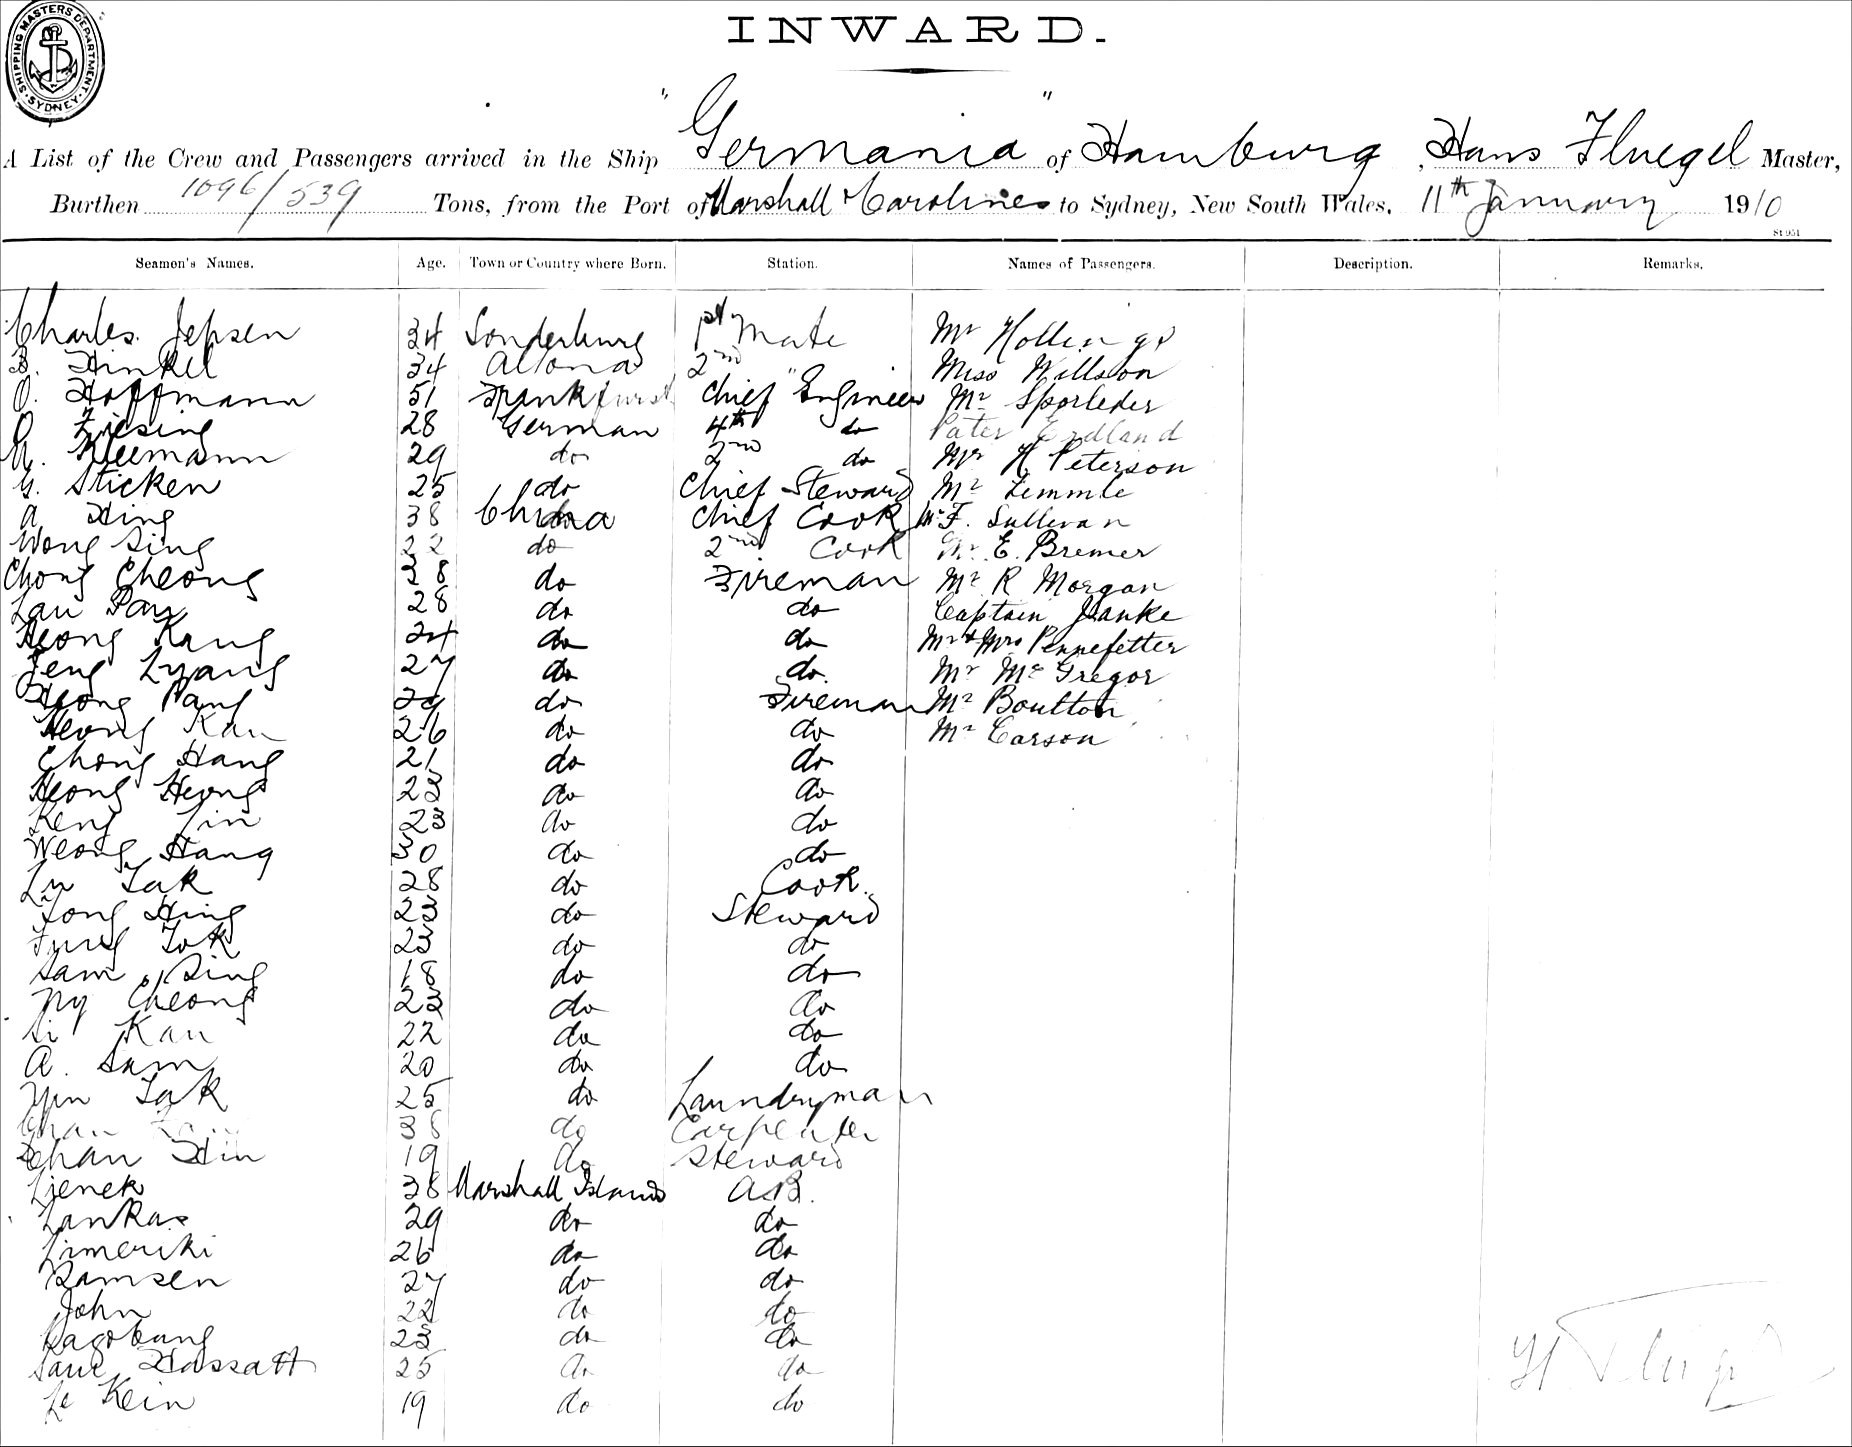 SHIPPING MASTERS DEPARTMENT. SYDNEY.
INWARD.
A List of the Crew and Passengers arrived in the Ship "Germania" of Hamburg, Hans Fluegel Master,
Burthen 1096/539 Tons, from the Port of Marshall & Carolines to Sydney, New South Wales, 11th January 1910
St 951
Seamen's Names. Age. Town or Country where Born. Station. Names of Passengers. Description. Remarks.
Charles Jepsen 34 Sonderburg 1st Mate Mr Hollings
B. Hinkel 34 Altona 2nd " Miss Willson
O. Hoffmann 51 Frankfurst Chief Engineer Mr Sporleder
Ziesing 28 German 4th do Pater Erdland
Kleemann 29 do 2nd do Mr H Peterson
G. Sticken 25 do Chief Steward Mr Lemmle
A Hing 38 China Chief Cook Mr F. Sullivan
Wong Sing 22 do 2nd Cook Mr E. Bremer
Chong Cheong 38 do Fireman Mr R Morgan
Lau Pay 28 do do Captain Janke
Heong Kang 24 do do Mr & Mrs Pennefetter
Jeng Lyang 27 do do. Mr McGregor
Heong Pang 29 do Fireman Mr Boulton
Heong Kau 26 do do Mr Carson
Chong Hang 21 do do
Heong Heong 23 do do
Keng Lin 23 do do
Weong Hang 30 do do
Lu Tak 28 do Cook
Tong Hing 23 do Steward
Fung Tok 23 do do
Sam Sing 18 do do
Ny Cheong 23 do do
Li Kau 22 do do
A. Sam 20 do do
Yun Tak 25 do Laundryman
Chan 38 do Carpenter
Chan Hin 19 do Steward
Ljenek 38 Marshall Islands A.B.
Lankas 29 do do
Limeriki 26 do do
Ramsen 27 do do
John 22 do do
Ragobung 23 do do
Hassatt 25 do do
Le Kein 19 do do
H Fluegel